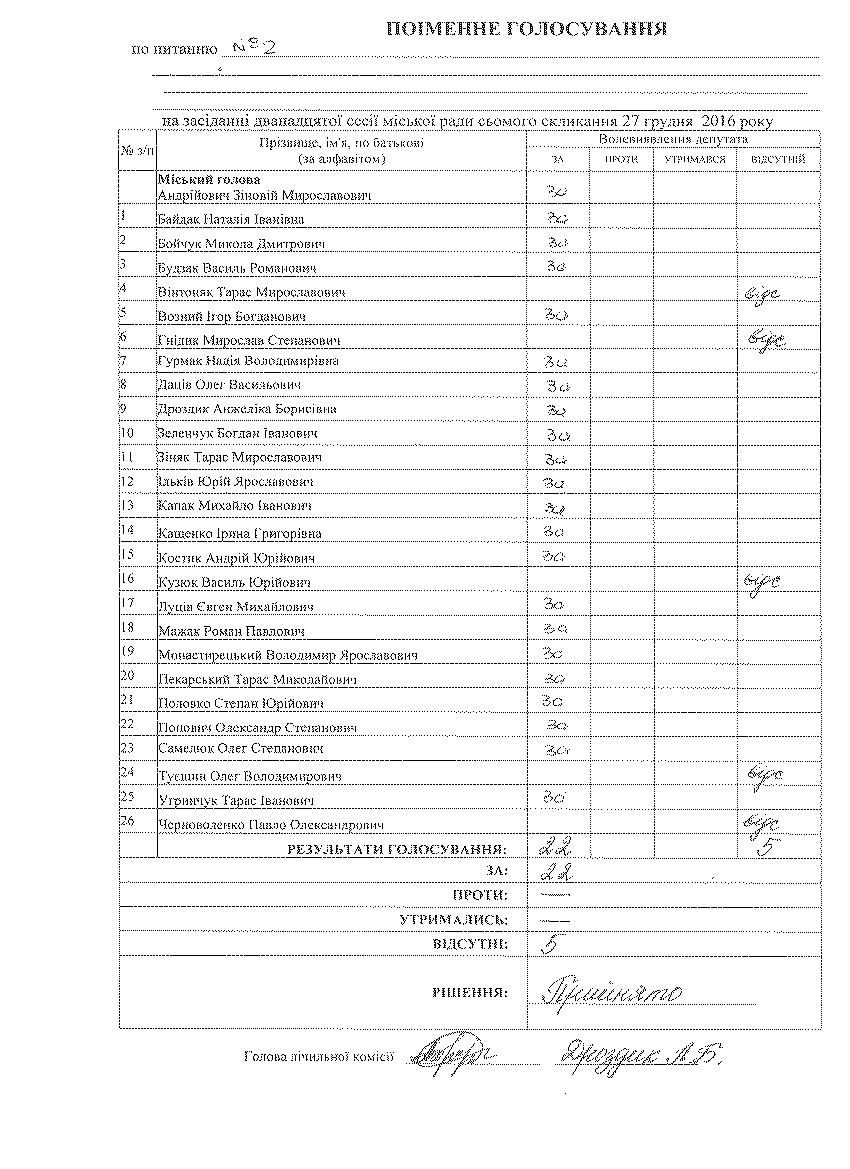 ПОІМЕННЕ ГОЛОСУВАННЯ
по питанню №2
на засіданні дванадцятої сесії міської ради сьомого скликання 27 грудня 2016 року
№ з/п Прізвище, ім'я, по батькові (за алфавітом) Волевиявлення депутата
ЗА ПРОТИ УТРИМАВСЯ ВІДСУТНІЙ
Міський голова
Андрійович Зіновій Мирославович за
1 Байдак Наталія Іванівна за
2 Бойчук Микола Дмитрович за
3 Будзак Василь Романович за
4 Вінтоняк Тарас Мирославович відс
5 Возний Ігор Богданович за
6 Гнідик Мирослав Степанович відс
7 Гурмак Надія Володимирівна за
8 Даців Олег Васильович за
9 Дроздик Анжеліка Борисівна за
10 Зеленчук Богдан Іванович за
11 Зіняк Тарас Мирославович за
12 Ільків Юрій Ярославович за
13 Капак Михайло Іванович за
14 Кащенко Ірина Григорівна за
15 Костик Андрій Юрійович за
16 Кузюк Василь Юрійович відс
17 Луців Євген Михайлович за
18 Мажак Роман Павлович за
19 Монастирецький Володимир Ярославович за
20 Пекарський Тарас Миколайович за
21 Половко Степан Юрійович за
22 Попович Олександр Степанович за
23 Самелюк Олег Степанович за
24 Туєшин Олег Володимирович відс
25 Угринчук Тарас Іванович за
26 Черноволенко Павло Олександрович відс
РЕЗУЛЬТАТИ ГОЛОСУВАННЯ: 22 5
ЗА: 22
ПРОТИ: —
УТРИМАЛИСЬ: —
ВІДСУТНІ: 5
РІШЕННЯ: Прийнято
Голова лічильної комісії Дроздик А.Б.